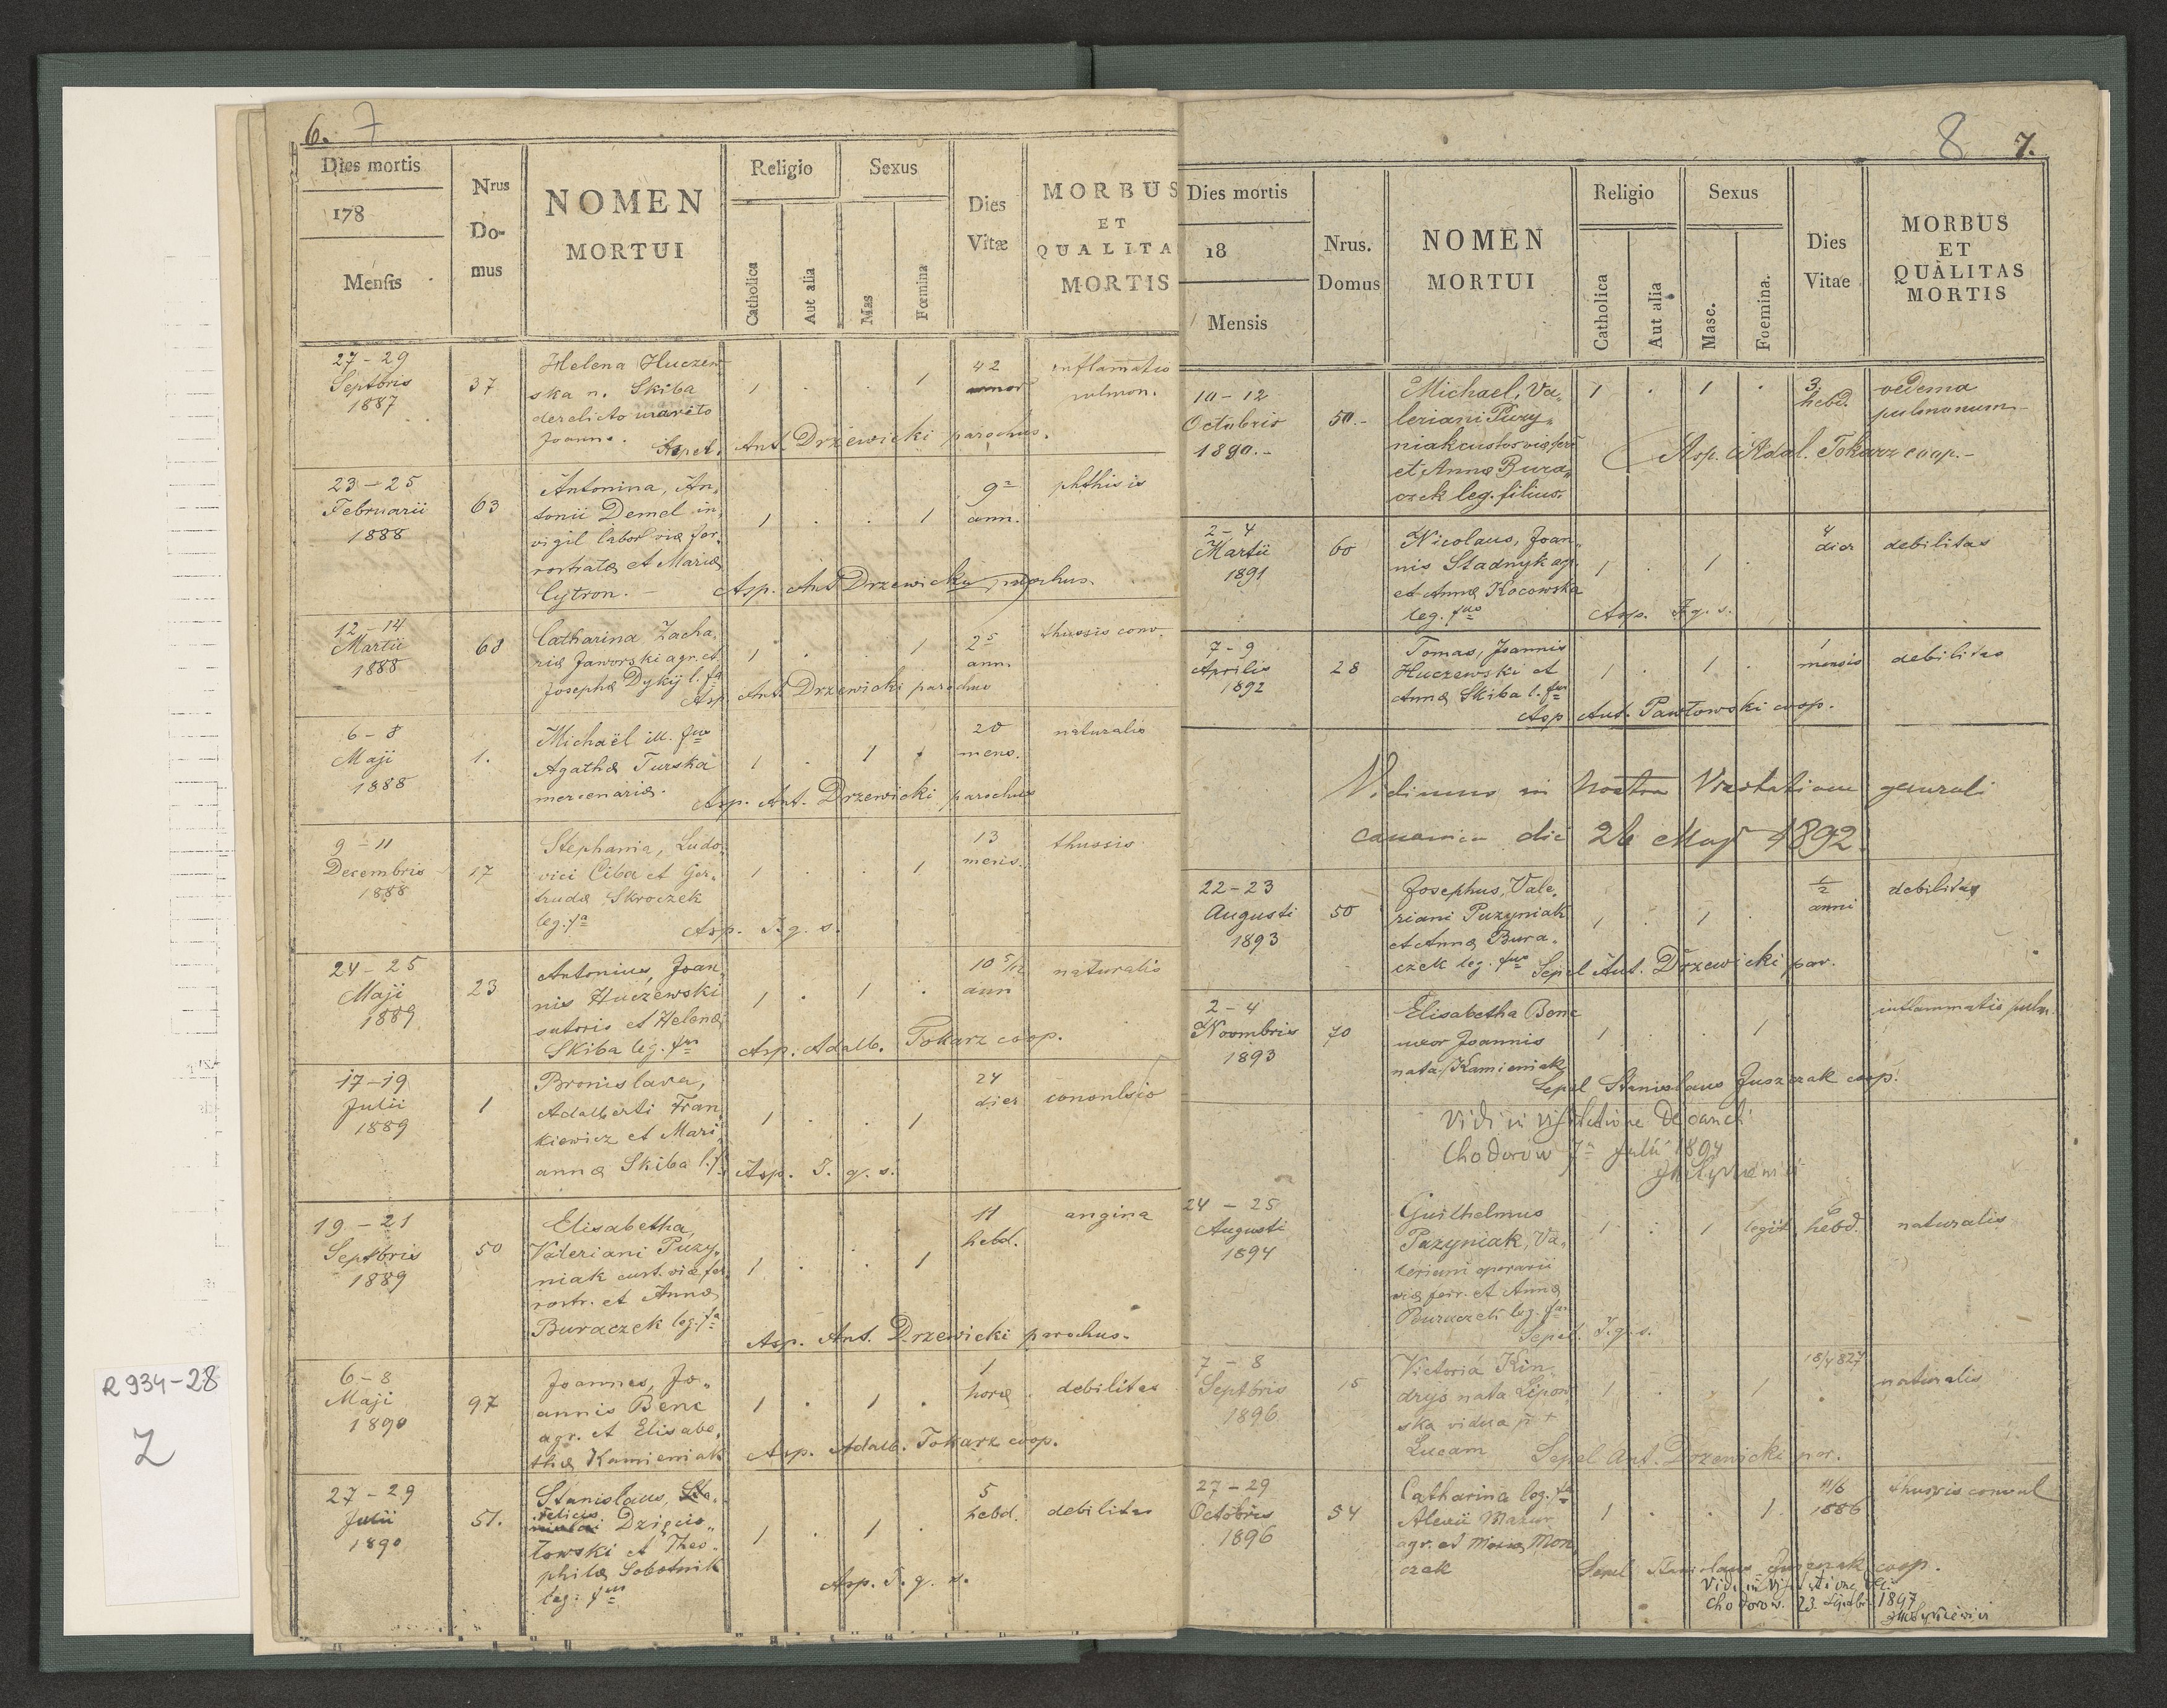 6. 7
Dies mortis
178
Mensis
Nrus
Do-
mus
NOMEN
MORTUI
Religio
Catholica
Aut alia
Sexus
Mas
Fœmina
Dies
Vitæ
MORBUS
ET
QUALITA
MORTIS
27 - 29
Septbris
1887
37
Helena Huczew
ska n. Skiba
derelicto marito
Joanne.
1 . . 1
42
inflamatio
pulmon.
Sepel. Ant. Drzewicki parochus.
23 - 25
Februarii
1888
63
Antonina, An„
tonii Demel in„
vigil labor viæ fer„
rostratæ et Mariæ
Cytron. -
1 . . 1
9
ann.
phthisis
Asp. Ant Drzewicki parochus.
12 - 14
Martii
1888
68
Catharina Zacha„
riæ Jaworski agr. et
Josephæ Dykij l. fa
1 . . 1
2 5
ann.
thussis conv.
Asp. Ant. Drzewicki parochus
6 - 8
Maji
1888
1.
Michaël ill. fus
Agathæ Turska
mercenariæ.
1 . 1 .
20
mens.
naturalis
Asp. Ant. Drzewicki parochus
9 - 11
Decembris
1888
17
Stephania, Ludo„
vici Ciba et Ger„
trudæ Skroczek
leg. fa
1 . . 1
13
mens.
thussis
Asp. I. q. s.
24 - 25
Maji
1889
23
Antonius, Joan„
nis Huczewski
sutoris et Helenæ
Skiba leg. fus
1 . 1 .
10 5/12
ann
naturalis
Asp. Adalb. Tokarz coop.
17 - 19
Julii
1889
1
Bronislava,
Adalberti Fran„
kiewicz et Mari„
annæ Skiba l. f.
1 . . 1
24
dier
convulsio
Asp. I. q. s.
19 - 21
Septbris
1889
50
Elisabetha,
Valeriani Puzy„
niak cust. viæ fer„
rostr. et Annæ
Buraczek leg. fa
1 . . 1
11
hebd.
angina
Asp. Ant. Drzewicki parochus.
6 - 8
Maji
1890
97
Joannes, Jo„
annis Benc
agr. et Elisabe„
thæ Kamieniak
1 . 1 .
1
horæ
debilitas
Asp. Adalb. Tokarz coop.
27 - 29
Julii
1890
51.
Stanislaus, Sta„
Felicis
Dzięcio„
łowski et Theo„
philæ Sobotnik
leg. fus
1 . 1 .
5
hebd.
debilitas
Asp. I. q. s.
8 7.
Dies mortis
18
Mensis
Nrus.
Domus
NOMEN
MORTUI
Religio
Catholica
Aut alia
Sexus
Masc.
Foemina.
Dies
Vitae
MORBUS
ET
QUALITAS
MORTIS
10 - 12
Octobris
1890.-
50.-
Michael, Va„
leriani Puzy„
niak custos viæ ferr
et Annæ Bura„
czek leg. filius.
1 . 1 .
3
hebd.
oedema
pulmonum
Asp. Adal. Tokarz coop.-
2 - 4
Martii
1891
60
Nicolaus, Joan„
nis Stadnyk agr.
et Annæ Kocowska
leg. fus
1 . 1 .
4
dier
debilitas
Asp. I. q. s.
7 - 9
Aprilis
1892
28
Tomas, Joannis
Huczewski et
Annæ Skiba l. fus
1 . 1 .
1
mensis
debilitas
Asp Ant. Pawłowski coop.
Vidimus in nostra Visitatione generali
canonica die 26 Maj 1892.
22 - 23
Augusti
1893
50
Josephus, Vale„
riani Puzyniak
et Annæ Bura„
czek leg. fus
1 . 1 .
1/2
anni
debilitas
Sepel Ant. Drzewicki par.
2 - 4
Novmbris
1893
70
Elisabetha Benc
uxor Joannis
nata Kamieniak
1 . . 1
inflammatio pulm.
Sepel Stanislaus Juszczak coop.
Vidi in visitatione Decanali
Chodorow 7 Julii 1894
24 - 25
Augusti
1894
Guilhelmus
Puzyniak, Va„
leriani operarii
viæ ferr. et Annæ
Buraczek leg. fus
1 . 1 legit
6
hebd.
naturalis
Sepel. I. q. s.
7 - 8
Septbris
1896
15
Victoria Kin„
dryś nata Lipow„
ska vidua p +
Lucam
1 . . 1
18/4 827
naturalis
Sepel Ant. Drzewicki par.
27 - 29
Octobris
1896
54
Catharina leg. fa
Alexii Mazur
agr. et Mariæ Mon„
czak
1 . . 1
11/6
1886
thussis convul
Sepel Stanislaus Juszczak coop.
Vidi in visitatione Dec.
Chodorow. 23 1897
R 934-28
Z